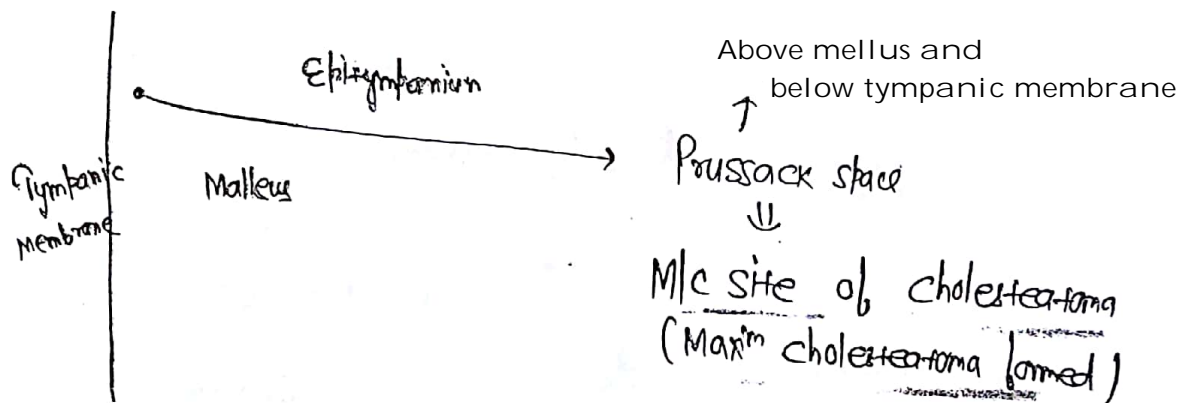 Tympanic
membrane
Epitympanium
Malleus
Above mellus and
below tympanic membrane
Prussack space
M/c site of cholesteatoma
(Maxᵐ cholesteatoma formed)